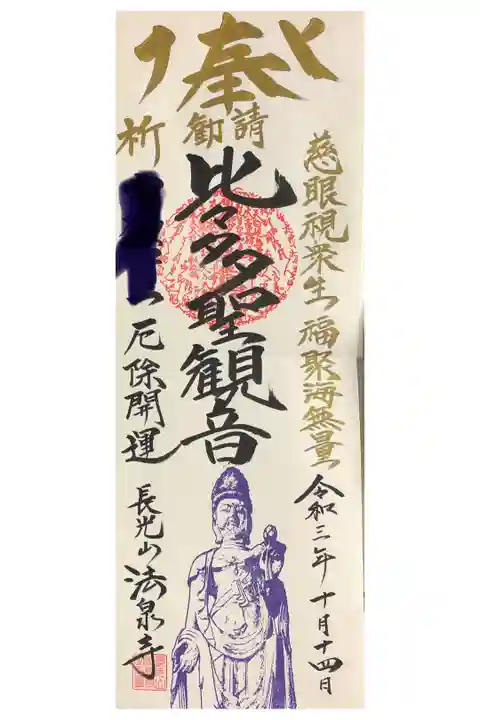 奉
勧請
慈眼視衆生 福聚海無量
令和三年 十月十四日
比々多聖観音
祈
厄除開運
長光山 法泉寺